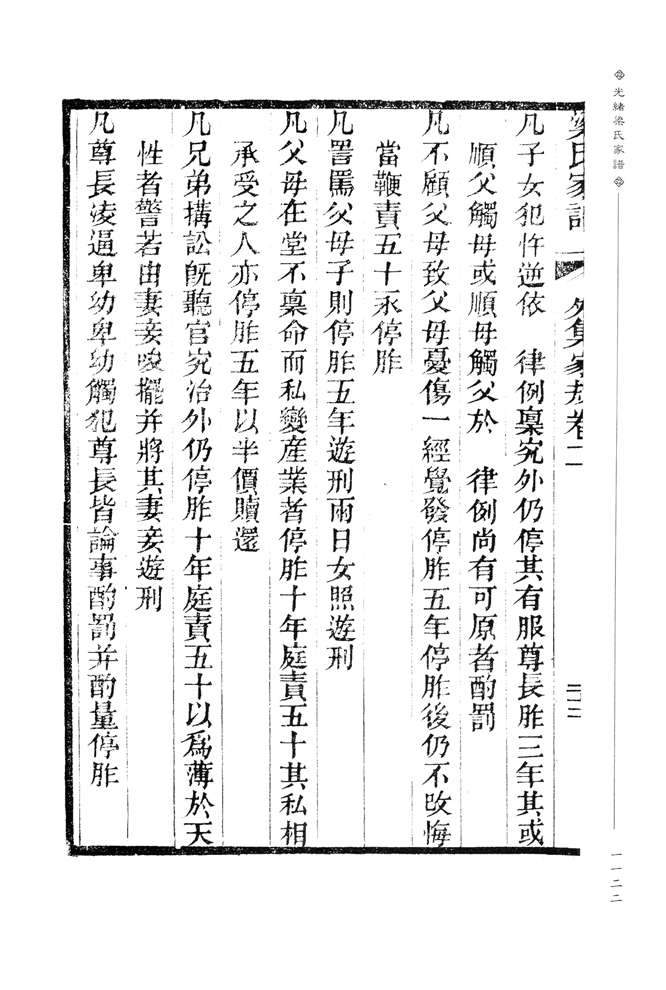 光緒梁氏家譜
一一二二
梁氏家譜 外集家規卷二 三十二
凡子女犯忤逆依 律例稟究外仍停其有服尊長胙三年其或
順父觸母或順母觸父於 律例尚有可原者酌罰
凡不顧父母致父母憂傷一經覺發停胙五年停胙後仍不改悔
當鞭責五十永停胙
凡詈罵父母子則停胙五年遊刑兩日女照遊刑
凡父母在堂不稟命而私變産業者停胙十年庭責五十其私相
承受之人亦停胙五年以半價贖還
凡兄弟搆訟旣聽官究治外仍停胙十年庭責五十以爲薄於天
性者警若由妻妾唆擺并將其妻妾遊刑
凡尊長淩逼卑幼卑幼觸犯尊長皆論事酌罰并酌量停胙